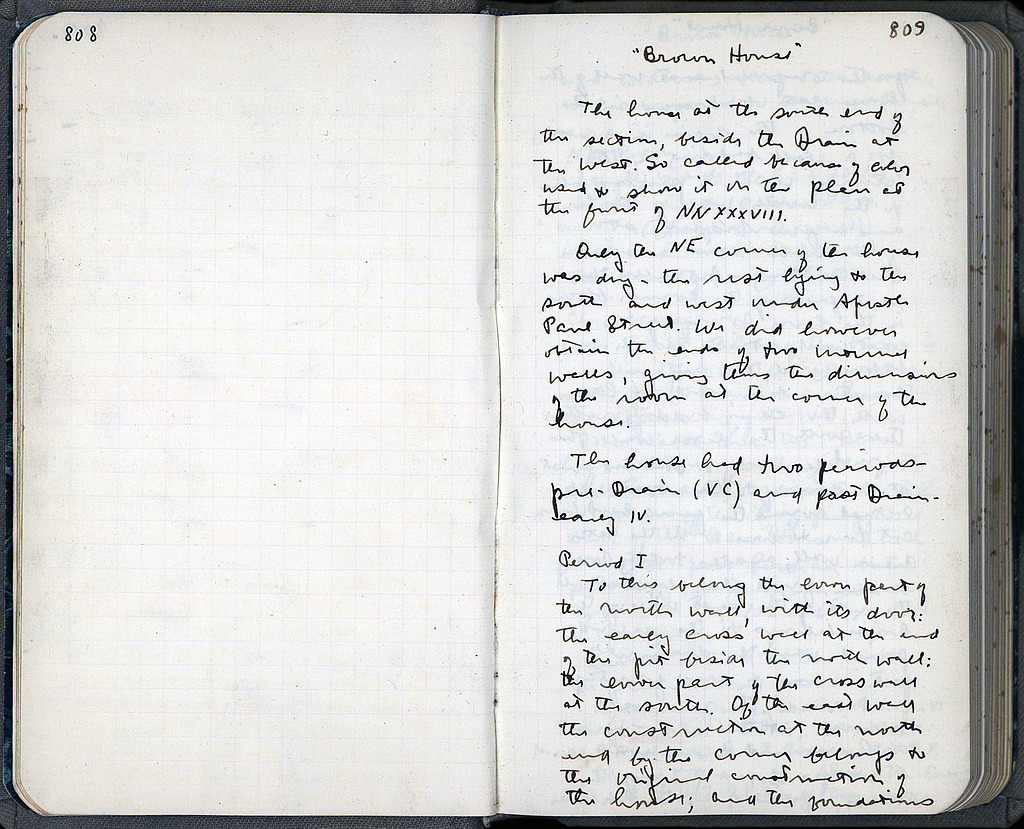 808
809
"Brown House"
The house at the south end of
the section, beside the Drain at
the west. So called because of color
used to show it on the plan at
the front of NN XXXVIII.
Only the NE corner of the house
was dug - the rest lying to the
south and west under Apostle
Paul Street. We did however
obtain the ends of two internal
walls, giving thus the dimensions
of the room at the corner of the
house.
The house had two periods -
pre-Drain (VC) and post Drain -
early IV.
Period I
To this belong the lower part of
the north wall, with its door:
the early cross wall at the end
of the pit beside the north wall:
the lower part of the cross wall
at the south. Of the east wall
the construction at the north
end by the corner belongs to
the original construction of
the house; and the foundations